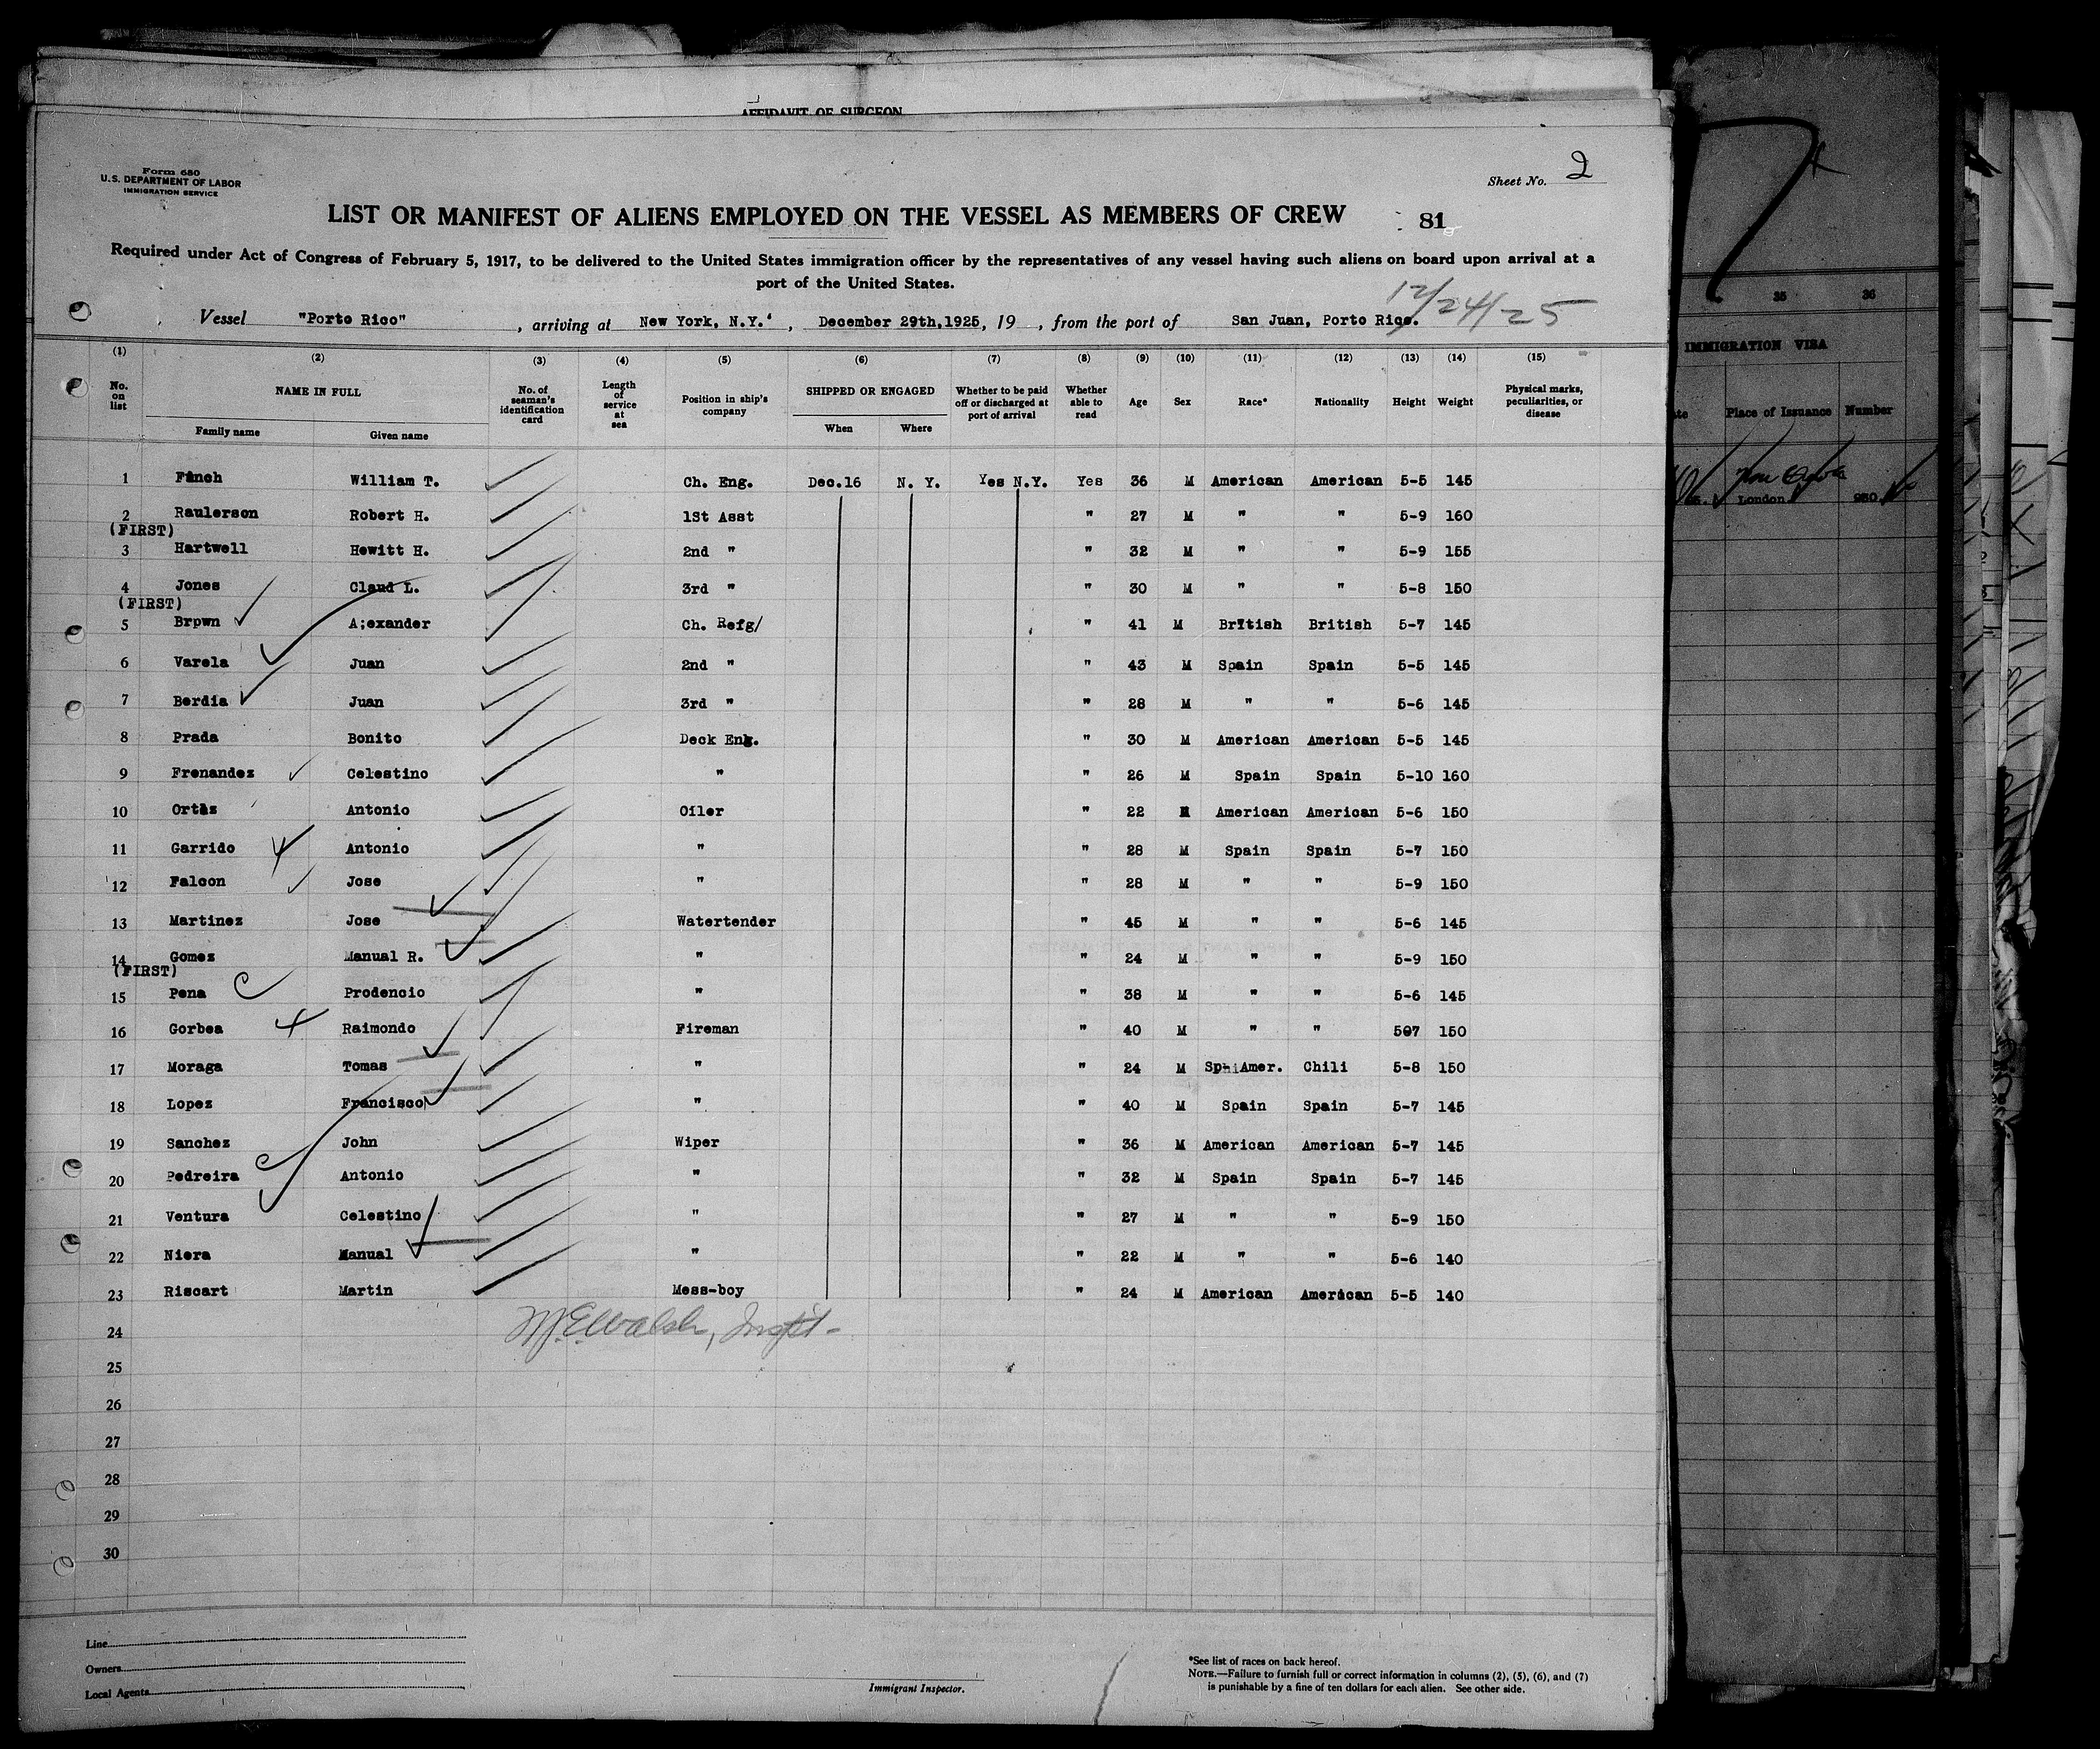 AFFIDAVIT OF SURGEON
Form 680
U.S. DEPARTMENT OF LABOR
IMMIGRATION SERVICE
Sheet No. 2
LIST OR MANIFEST OF ALIENS EMPLOYED ON THE VESSEL AS MEMBERS OF CREW 81
Required under Act of Congress of February 5, 1917, to be delivered to the United States immigration officer by the representatives of any vessel having such aliens on board upon arrival at a
port of the United States.
12/24/25
Vessel "Porto Rico" , arriving at New York, N.Y. , December 29th,1925, 19 , from the port of San Juan, Porto Rico.
(1) (2) (3) (4) (5) (6) (7) (8) (9) (10) (11) (12) (13) (14) (15)
No. on list NAME IN FULL Family name Given name No. of seaman's identification card Length of service at sea Position in ship's company SHIPPED OR ENGAGED When Where Whether to be paid off or discharged at port of arrival Whether able to read Age Sex Race* Nationality Height Weight Physical marks, peculiarities, or disease
1 Finch William T. Ch. Eng. Dec.16 N. Y. Yes N.Y. Yes 36 M American American 5-5 145
2 Raulerson Robert H. 1St Asst " 27 M " " 5-9 160
(FIRST)
3 Hartwell Hewitt H. 2nd " " 32 M " " 5-9 155
4 Jones Claud L. 3rd " " 30 M " " 5-8 150
(FIRST)
5 Brpwn A;exander Ch. Refg/ " 41 M British British 5-7 145
6 Varela Juan 2nd " " 43 M Spain Spain 5-5 145
7 Berdia Juan 3rd " " 28 M " " 5-6 145
8 Prada Bonito Deck Eng. " 30 M American American 5-5 145
9 Frenandez Celestino " " 26 M Spain Spain 5-10 160
10 Ortiz Antonio Oiler " 22 M American American 5-6 150
11 Garrido Antonio " " 28 M Spain Spain 5-7 150
12 Falcon Jose " " 28 M " " 5-9 150
13 Martinez Jose Watertender " 45 M " " 5-6 145
14 Gomez Manual R. " " 24 M " " 5-9 150
(FIRST)
15 Pena Prodencio " " 38 M " " 5-6 145
16 Gorbea Raimondo Fireman " 40 M " " 507 150
17 Moraga Tomas " " 24 M Sp Amer. Chili 5-8 150
18 Lopez Francisco " " 40 M Spain Spain 5-7 145
19 Sanchez John Wiper " 36 M American American 5-7 145
20 Pedreira Antonio " " 32 M Spain Spain 5-7 145
21 Ventura Celestino " " 27 M " " 5-9 150
22 Niera Manual " " 22 M " " 5-6 140
23 Riscart Martin Mess-boy " 24 M American American 5-5 140
24
25
26
27
28
29
30
Line
Owners
Local Agents
Immigrant Inspector.
*See list of races on back hereof.
NOTE.—Failure to furnish full or correct information in columns (2), (5), (6), and (7)
is punishable by a fine of ten dollars for each alien. See other side.
35 36
IMMIGRATION VISA
Place of Issuance Number
London